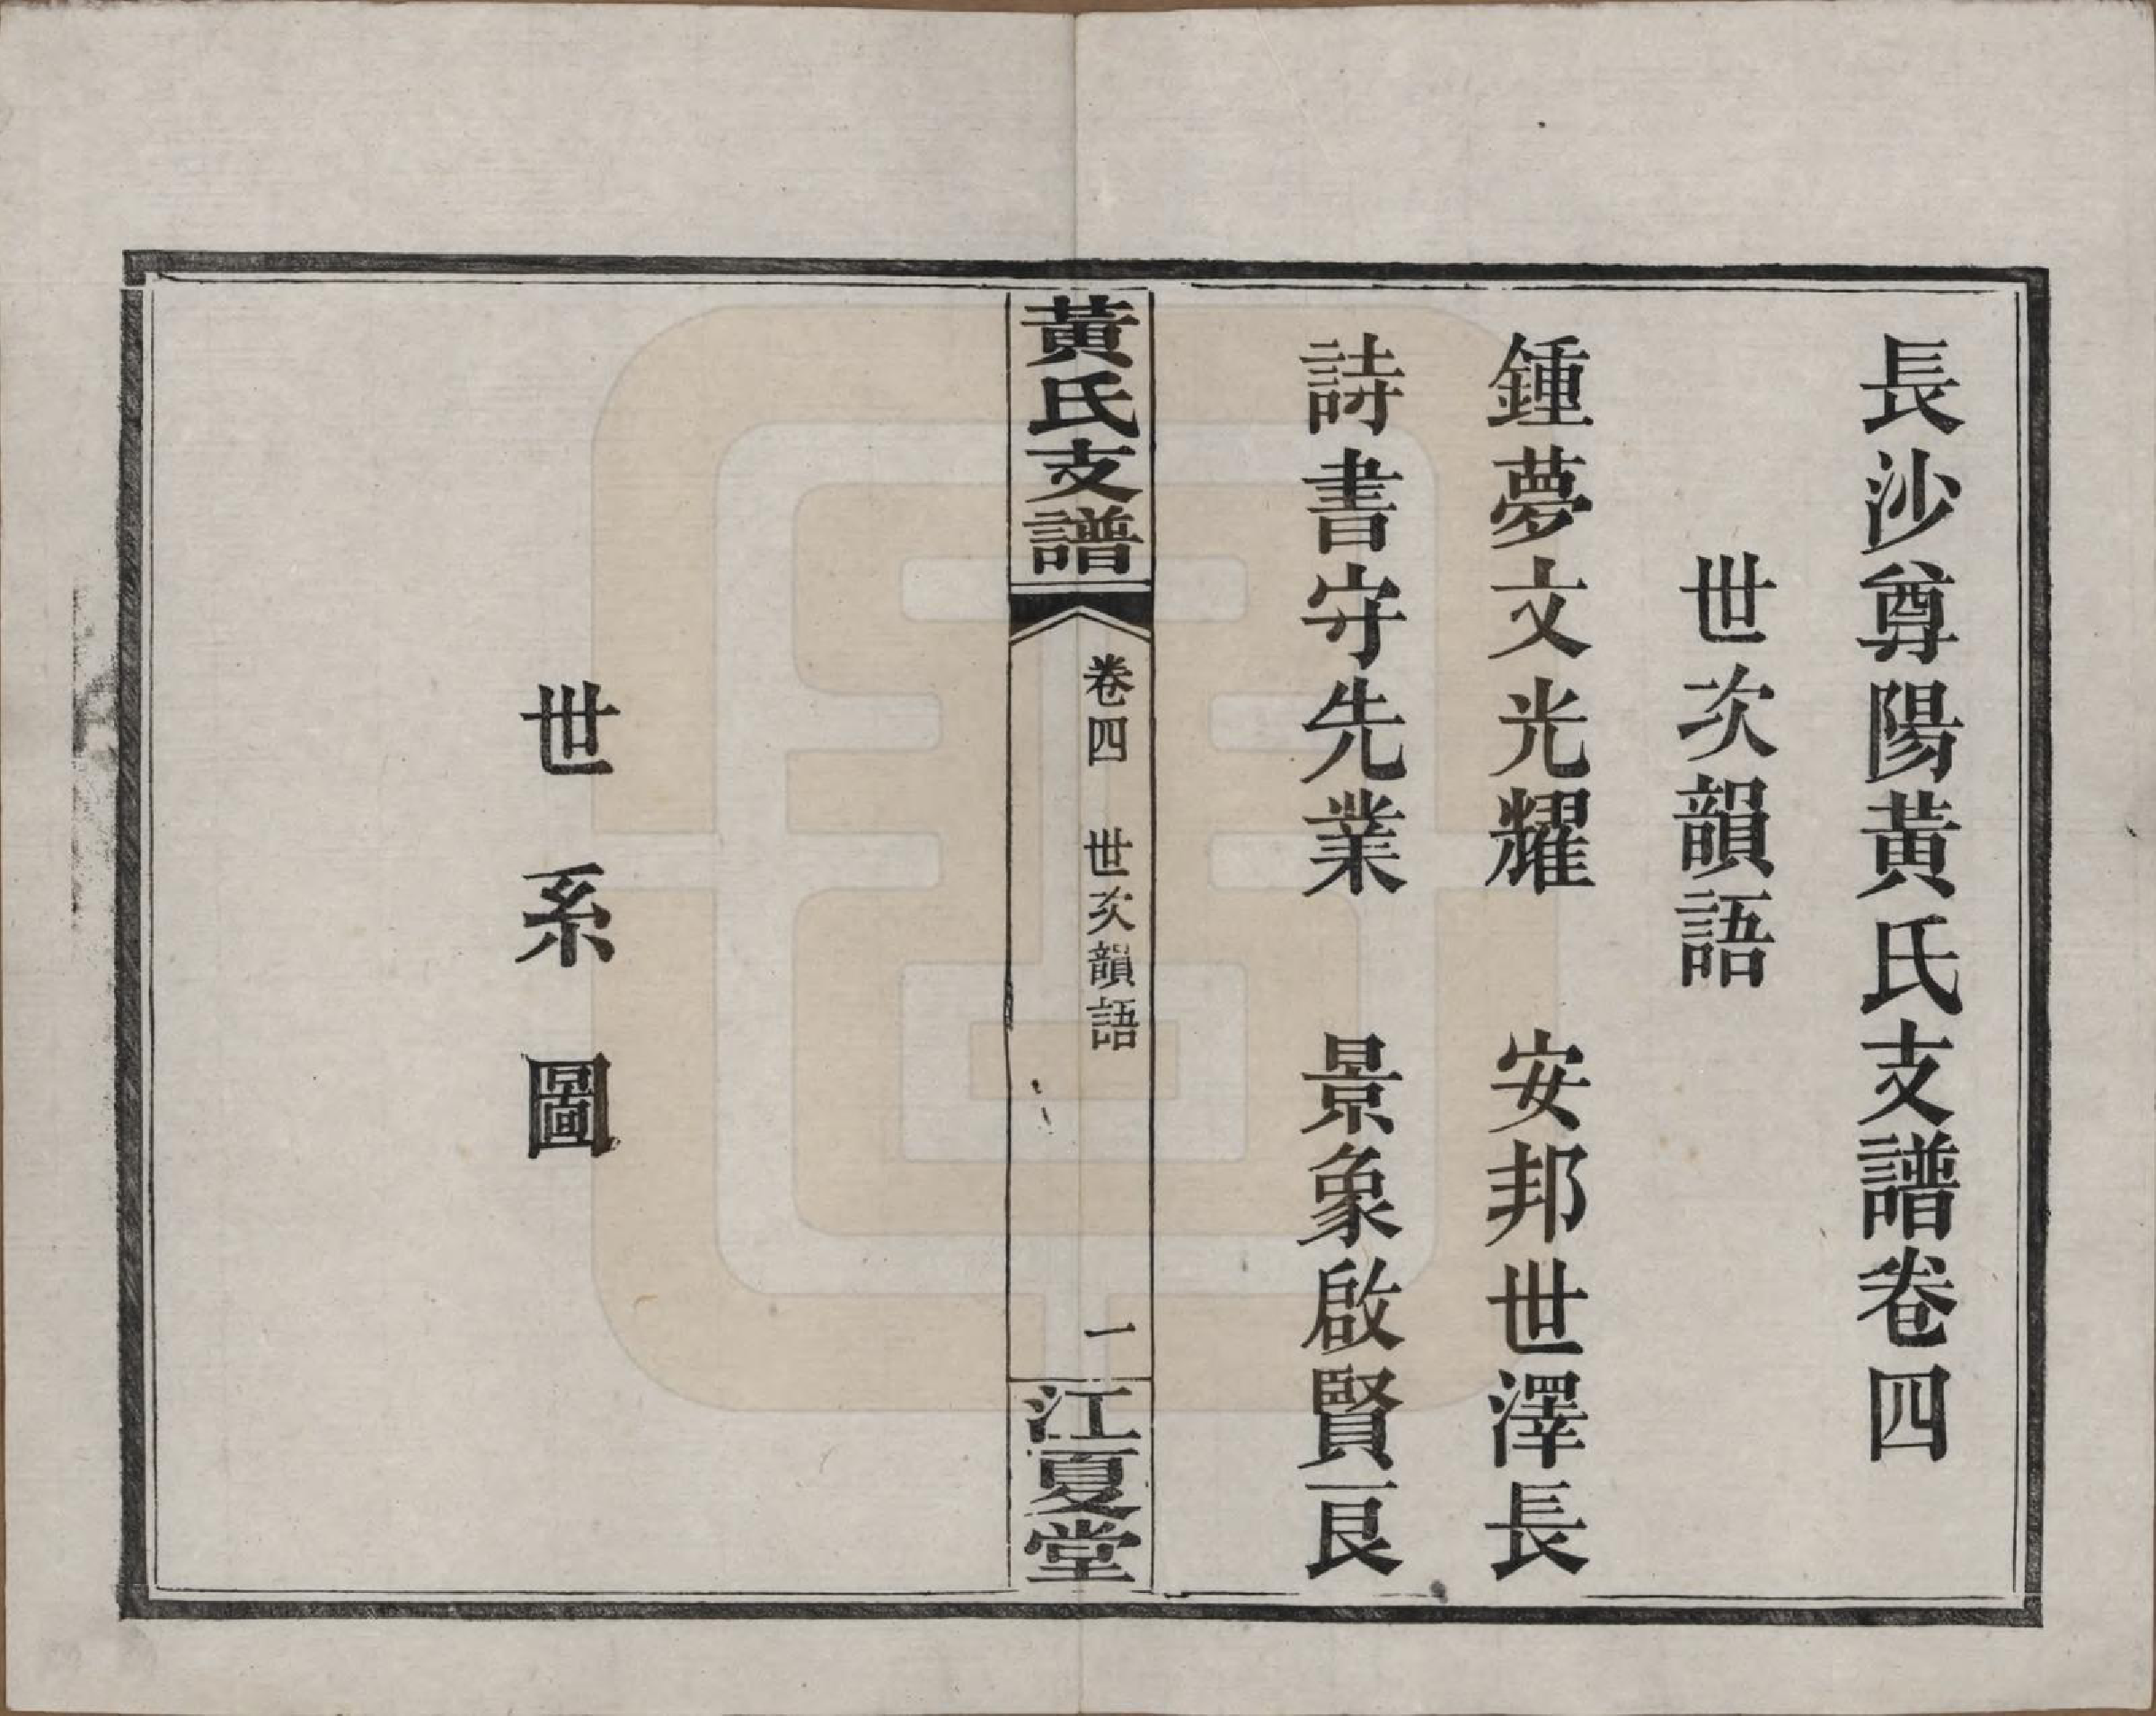 長沙尊陽黃氏支譜卷四
世次韻語
鍾夢文光耀　安邦世澤長
詩書守先業　景象啟賢良
黃氏支譜
卷四　世次韻語
一
江夏堂
世系圖